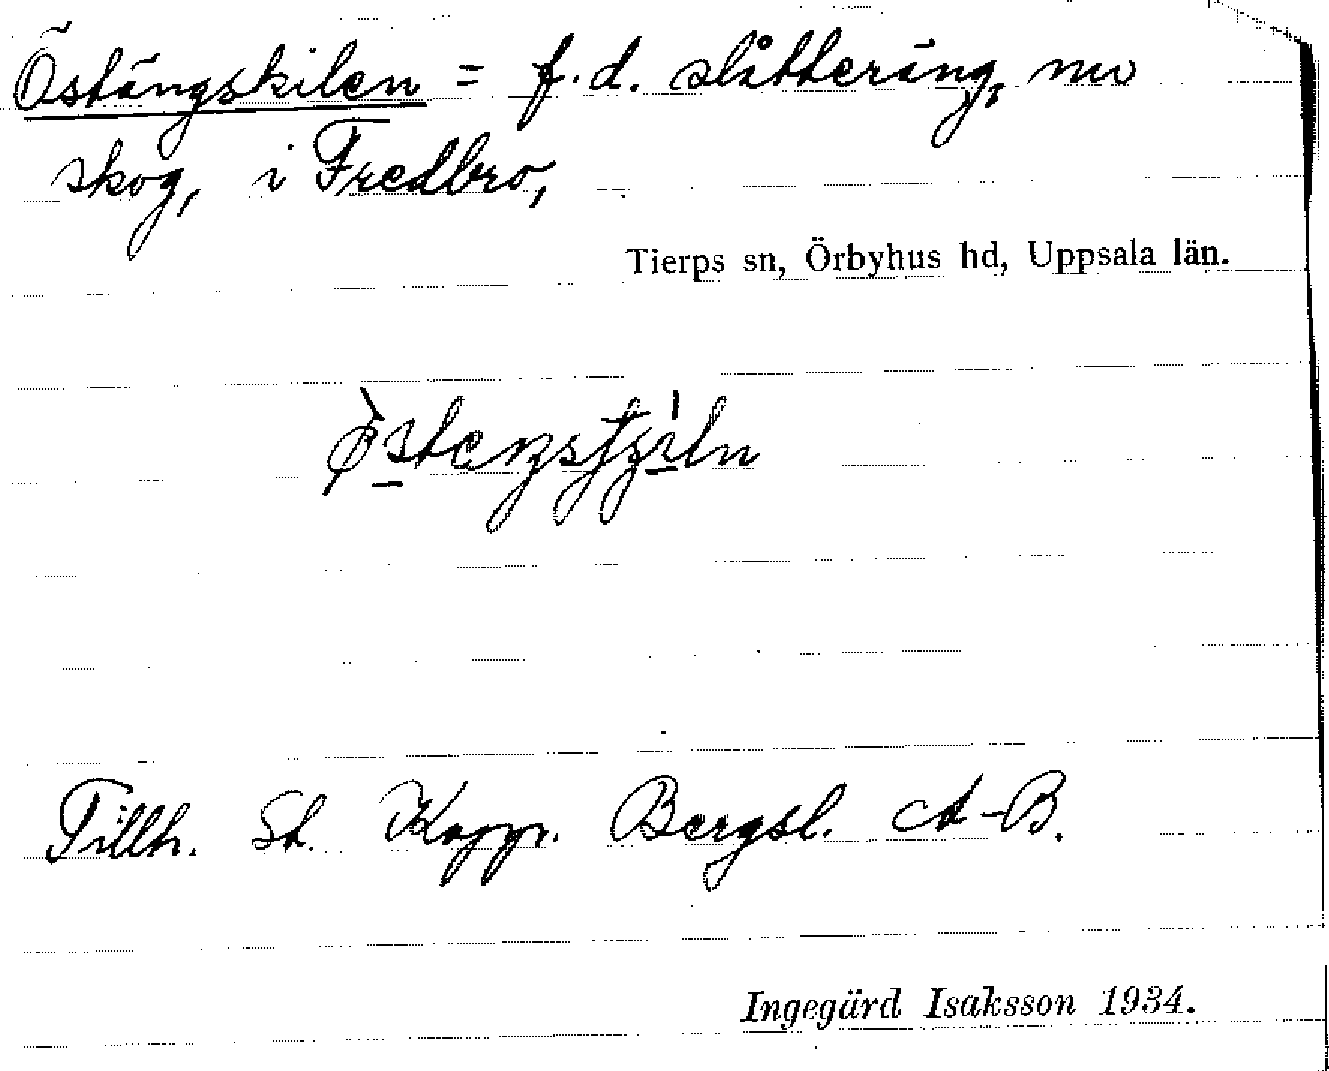 Östängskilen = f.d. slåtteräng, nu
skog, i Fredbro,
Tierps sn, Örbyhus hd, Uppsala län.
Tillh. St. Koppr. Bergsl. A-B.
Ingegärd Isaksson 1934.